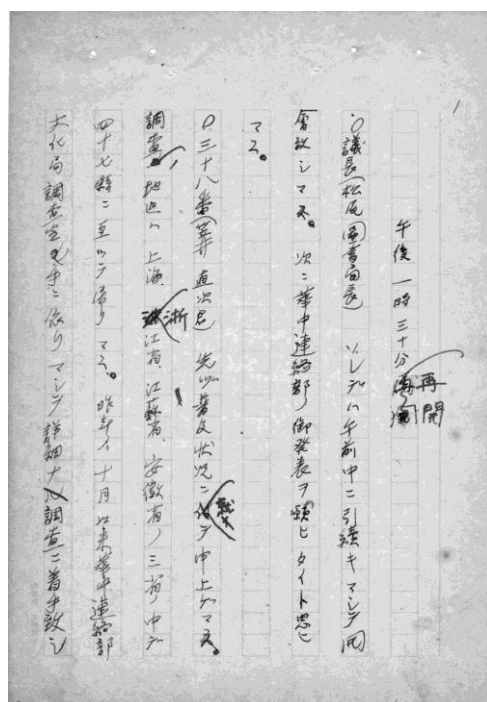 1
午後一時三十分再開
○議長(松尾圖書局長) ソレデハ午前中ニ引續キマシテ開
會致シマス。次ニ華中連絡部ノ御發表ヲ願ヒタイト思ヒ
マス。
○三十八番(笄直次君) 先ヅ普及狀況ニ就テ申上ゲマス。
調査地區ハ上海、浙江省、江蘇省、安徽省ノ三省ノ中デ
四十七縣ニ至ッテ居リマス。昨年ノ十月以來華中連絡部
文化局調査室ノ手ニ依リマシテ詳細ナル調査ニ着手致シ